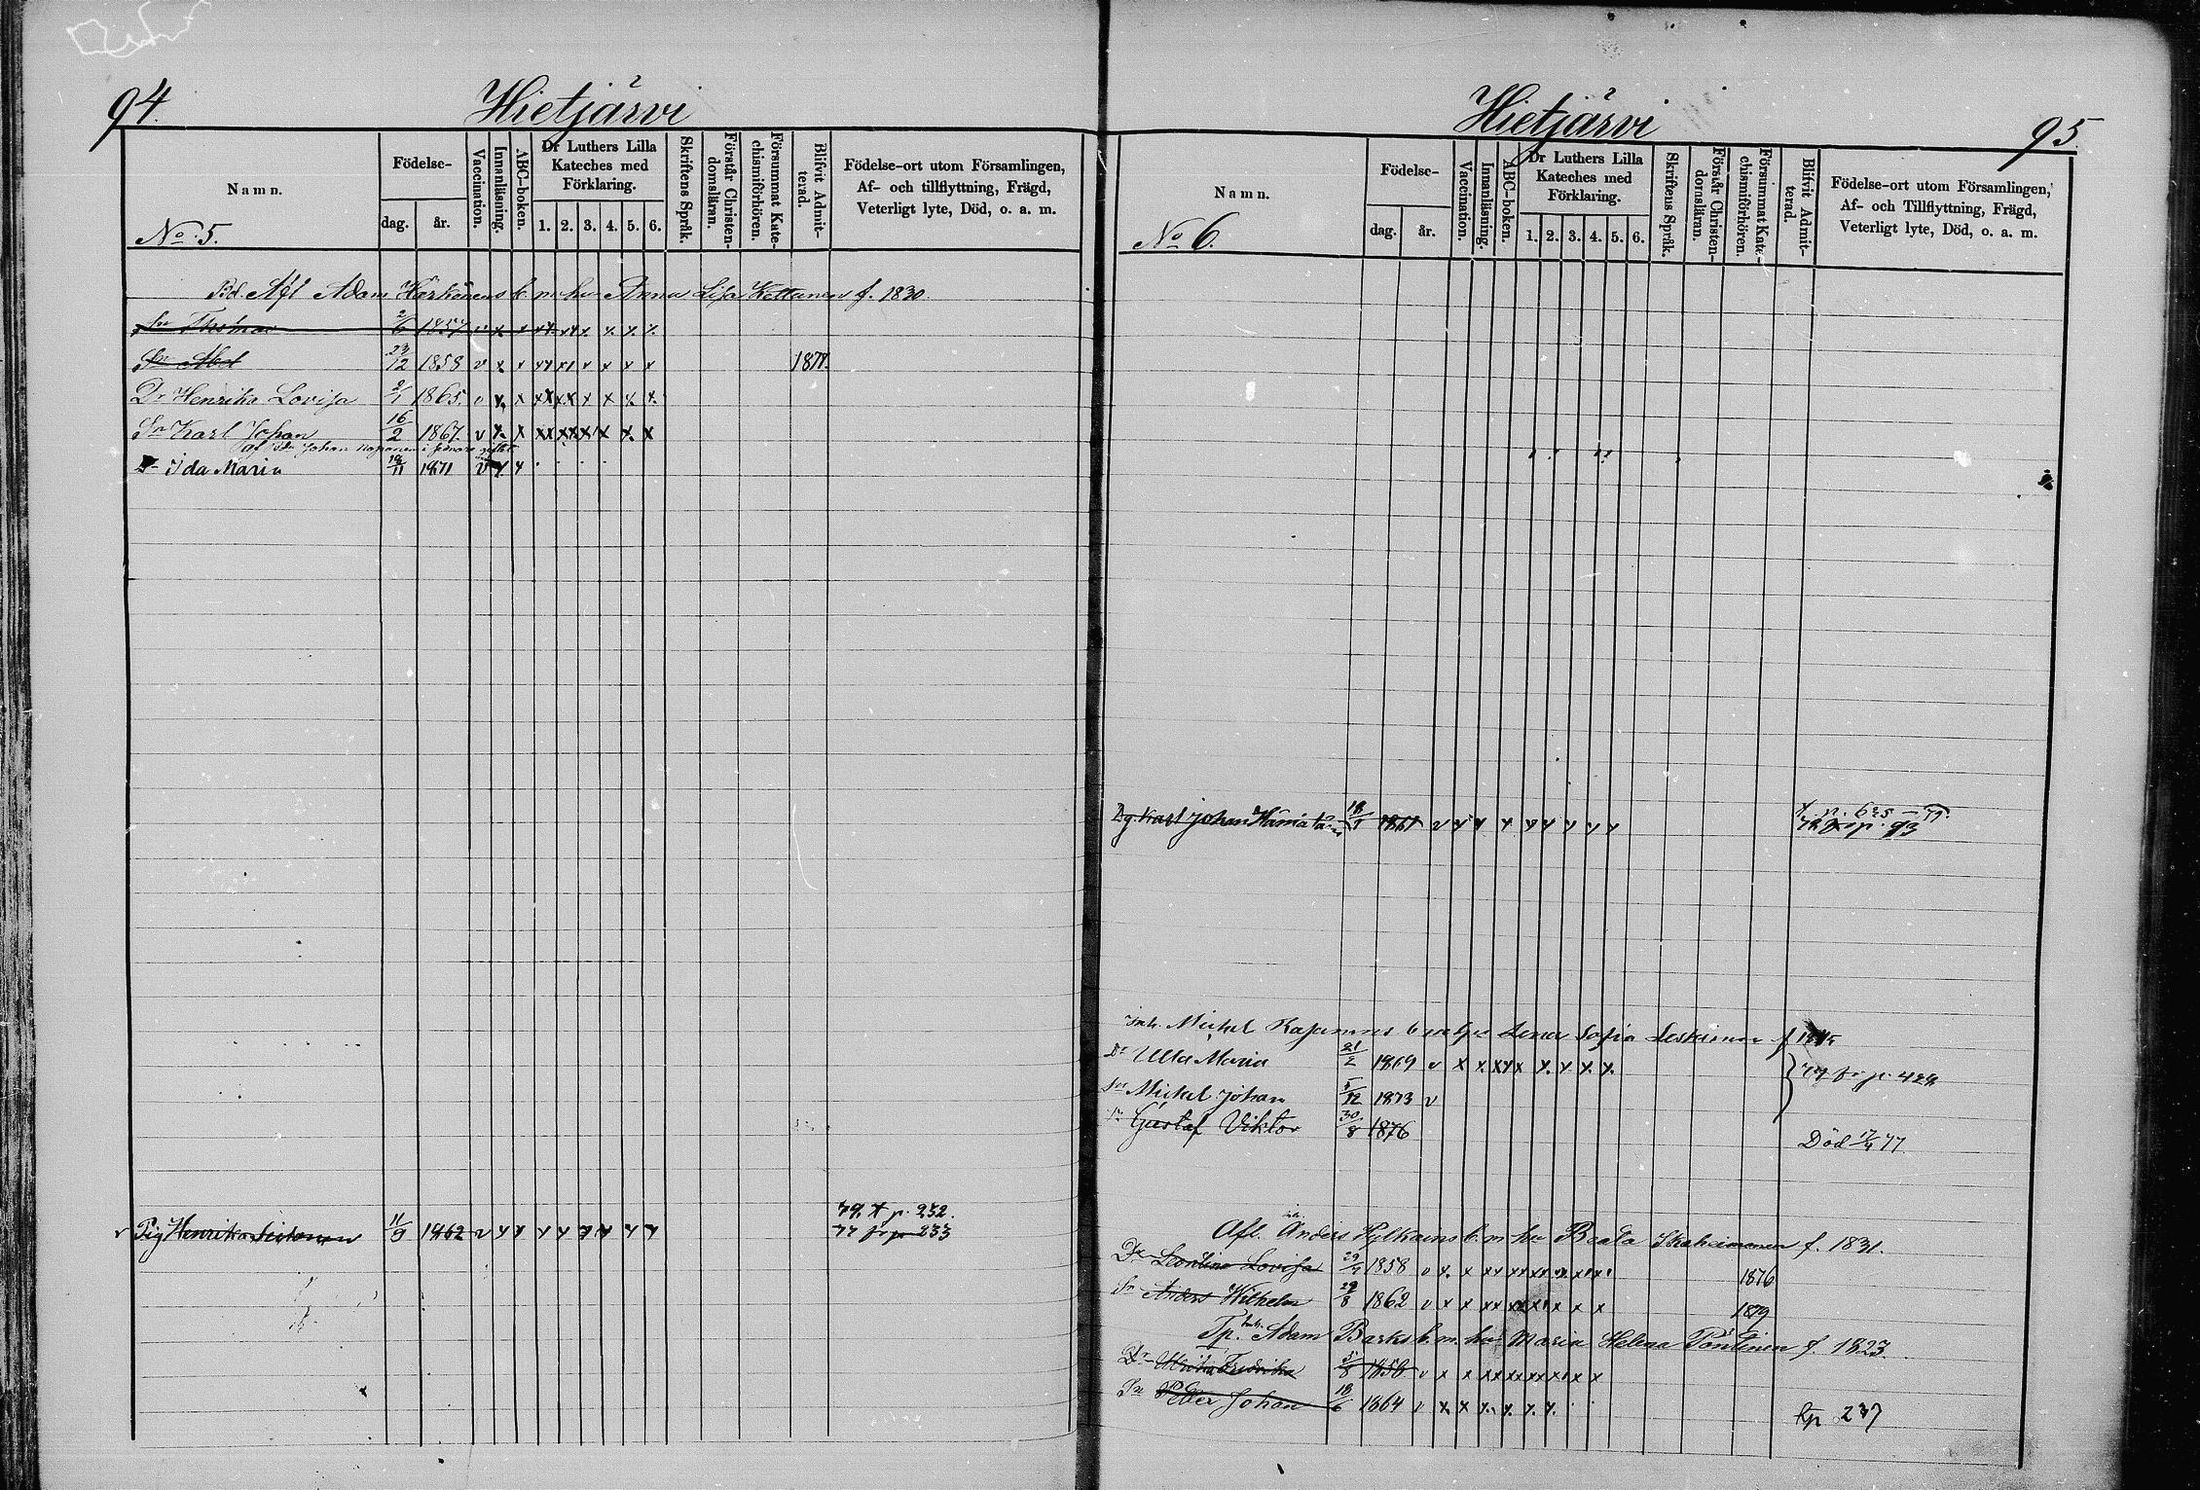 94.
Hietjärvi
Namn.
No. 5.
Födelse-
dag.
år.
Vaccination.
Innanläsning.
ABC-boken.
Dr Luthers Lilla
Kateches med
Förklaring.
1. 2. 3. 4. 5. 6.
Skriftens Språk.
Förstår Christen-
domsläran.
Försummat Kate-
chismiförhören.
Blifvit Admit-
terad.
Födelse-ort utom Församlingen,
Af- och tillflyttning, Frägd,
Veterligt lyte, Död, o. a. m.
Bd. Afl Adam Härkönens b. m. hu Anna Lisa Kettunen f. 1830.
Sn Thomas 2/6 1857 v x x xx xx x x x x
Sn Abel 23/12 1858 v x x xx xx x x x x 1878.
Dr Henrika Lovisa 2/1 1865. v x x xx xx x x x x
Sn Karl Johan 16/2 1867. v x x xx xx x x x x
af Johan i senare giftet
Dr Ida Maria 18/11 1871 v x x
Pig Henrika 11/9 1862 v x x x x x x x x
79. t p. 232.
77 fr p 233
Hietjärvi
95.
Namn.
No 6.
Födelse-
dag.
år.
Vaccination.
Innanläsning.
ABC-boken.
Dr Luthers Lilla
Kateches med
Förklaring.
1. 2. 3. 4. 5. 6.
Skriftens Språk.
Förstår Christen-
domsläran.
Försummat Kate-
chismiförhören.
Blifvit Admit-
terad.
Födelse-ort utom Församlingen,
Af- och Tillflyttning, Frägd,
Veterligt lyte, Död, o. a. m.
p. 625 - 79.
Dg. Karl Johan 18/1 1861 v x x x x x x x x p. 93
Inh. Michel b m hu Lena Sofia Leskinen f
Dr Ulla Maria 21/2 1869 v x x xx x x x x x 77 fr p. 428
Sn Michel Johan 5/12 1873 v
Sn Gustaf Viktor 30/8 1876
Död 17/4 77
Afl. inh. Anders b. m. hu Beata f. 1831.
Dr Leontina Lovisa 29/4 1858 v x x xx xx xx xx xx x 1876
Sn Anders Wilhelm 29/8 1862 v x x xx xx xx x x x 1879
Tp. Inh. Adam Barks b. m. hu Maria Helena Pöntinen f. 1823.
Dr Ulrika Fredrika 5/8 1858 v x x xx xx xx x x x
Sn Peter Johan 18/6 1864 v x x x x x x
kp 237